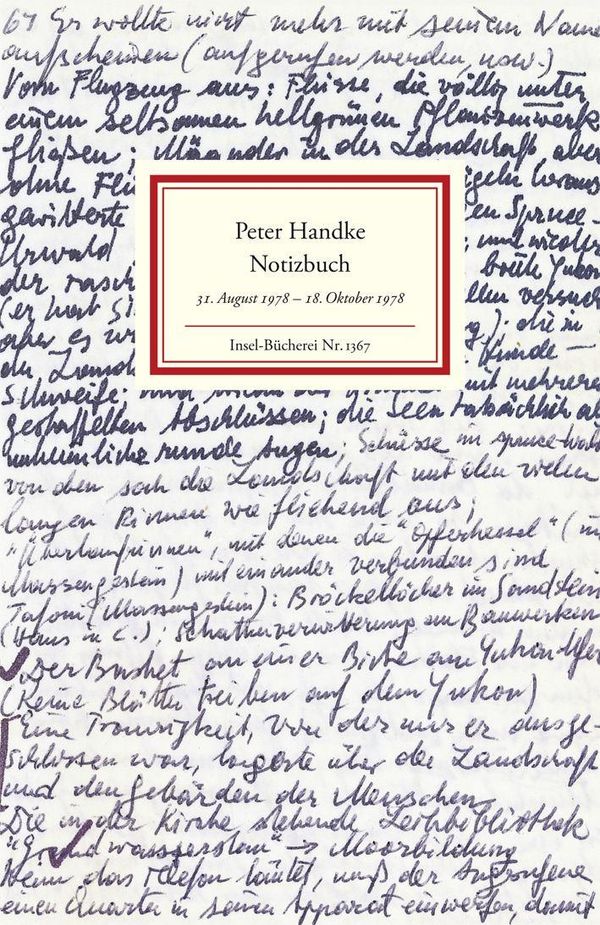 67 Er wollte nicht mehr mit seinem Name
aufscheinen (aufgerufen werden, usw.)
Vom Flugzeug aus: Flüsse, die völlig unter
einem seltsamen hellgrünen Pflanzenwerk
fließen; Mäander in der Landschaft aber
ohne Flü
geln heraus
gewitterte
en Spruce-
Urwald
und wieder
der rasch
breite Yukon
(er hat Si
ellen versuch
aber es w
die in
der Lands
Hunde —
Schweife:
mit mehreren
gestaffelten Abschlüssen; die Seen tatsächlich als
unheimliche runde Augen; Schüsse im Spruce-Wald
von den sah die Landschaft mit den vielen
langen Rinnen wie fliehend aus;
"Überlaufrinnen", mit denen die "Opferkessel" (im
Massengestein) miteinander verbunden sind
Tafoni (Massengestein): Bröckellöcher im Sandstein
(Haus in C.); Schattenverwitterung an Bauwerken
Der Basket an einer Birke am Yukon-Ufer
(Keine Blätter treiben auf dem Yukon)
Eine Traurigkeit, von der nur er ausge-
schlossen war, lagerte über der Landschaft
und den Gebärden der Menschen
Die in der Kirche stehende Leihbibliothek
"Grundwasserstau" → Moorbildung
Wenn das Telefon läutet, muß der Angerufene
einen Quarter in seinen Apparat einwerfen, damit
Peter Handke
Notizbuch
31. August 1978 – 18. Oktober 1978
Insel-Bücherei Nr. 1367